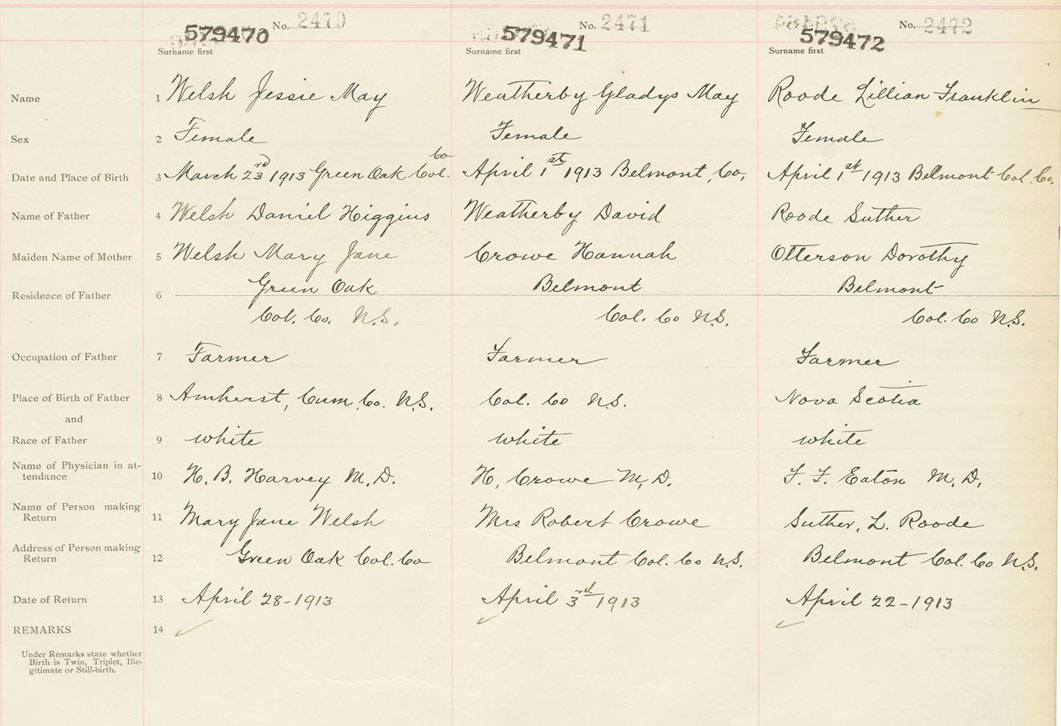 No. 2470 No. 2471 No. 2472
579470 579471 579472
Surname first Surname first Surname first
Name 1 Welsh Jessie May Weatherby Gladys May Roode Lillian Franklin
Sex 2 Female Female Female
Co
Date and Place of Birth 3 March 23rd 1913 Green Oak Col. April 1st 1913 Belmont, Co, April 1st 1913 Belmont Col. Co,
Name of Father 4 Welsh Daniel Higgins Weatherby David Roode Suther
Maiden Name of Mother 5 Welsh Mary Jane Crowe Hannah Otterson Dorothy
Residence of Father 6 Green Oak Belmont Belmont
Col. Co. N.S. Col. Co N.S. Col. Co N.S.
Occupation of Father 7 Farmer Farmer Farmer
Place of Birth of Father 8 Amherst, Cum. Co. N.S. Col. Co N.S. Nova Scotia
and
Race of Father 9 white white white
Name of Physician in at-
tendance 10 H. B. Harvey M.D. H. Crowe M.D. F. F. Eaton M.D.
Name of Person making
Return 11 Mary Jane Welsh Mrs Robert Crowe Suther, L. Roode
Address of Person making
Return 12 Green Oak Col. Co Belmont Col. Co N.S. Belmont Col. Co N.S.
Date of Return 13 April 28-1913 April 3rd 1913 April 22-1913
REMARKS 14
Under Remarks state whether
Birth is Twin, Triplet, Ille-
gitimate or Still-birth.